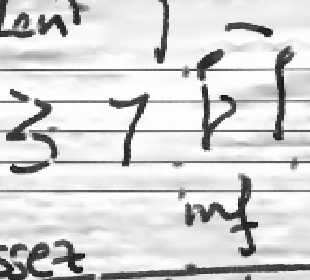 Lent
mf
ssez